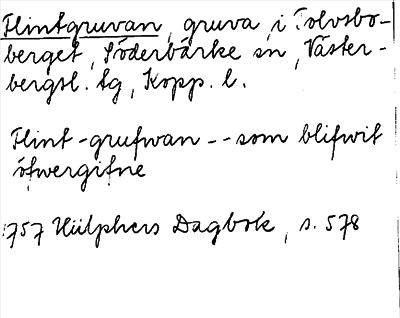 Flintgruvan, gruva i Tolvsbo-
berget, Söderbärke sn, Väster-
bergsl. tg, Kopp. l.
Flint-grufwan -- som blifwit
öfwergifne
1757 Hülphers Dagbok, s. 578